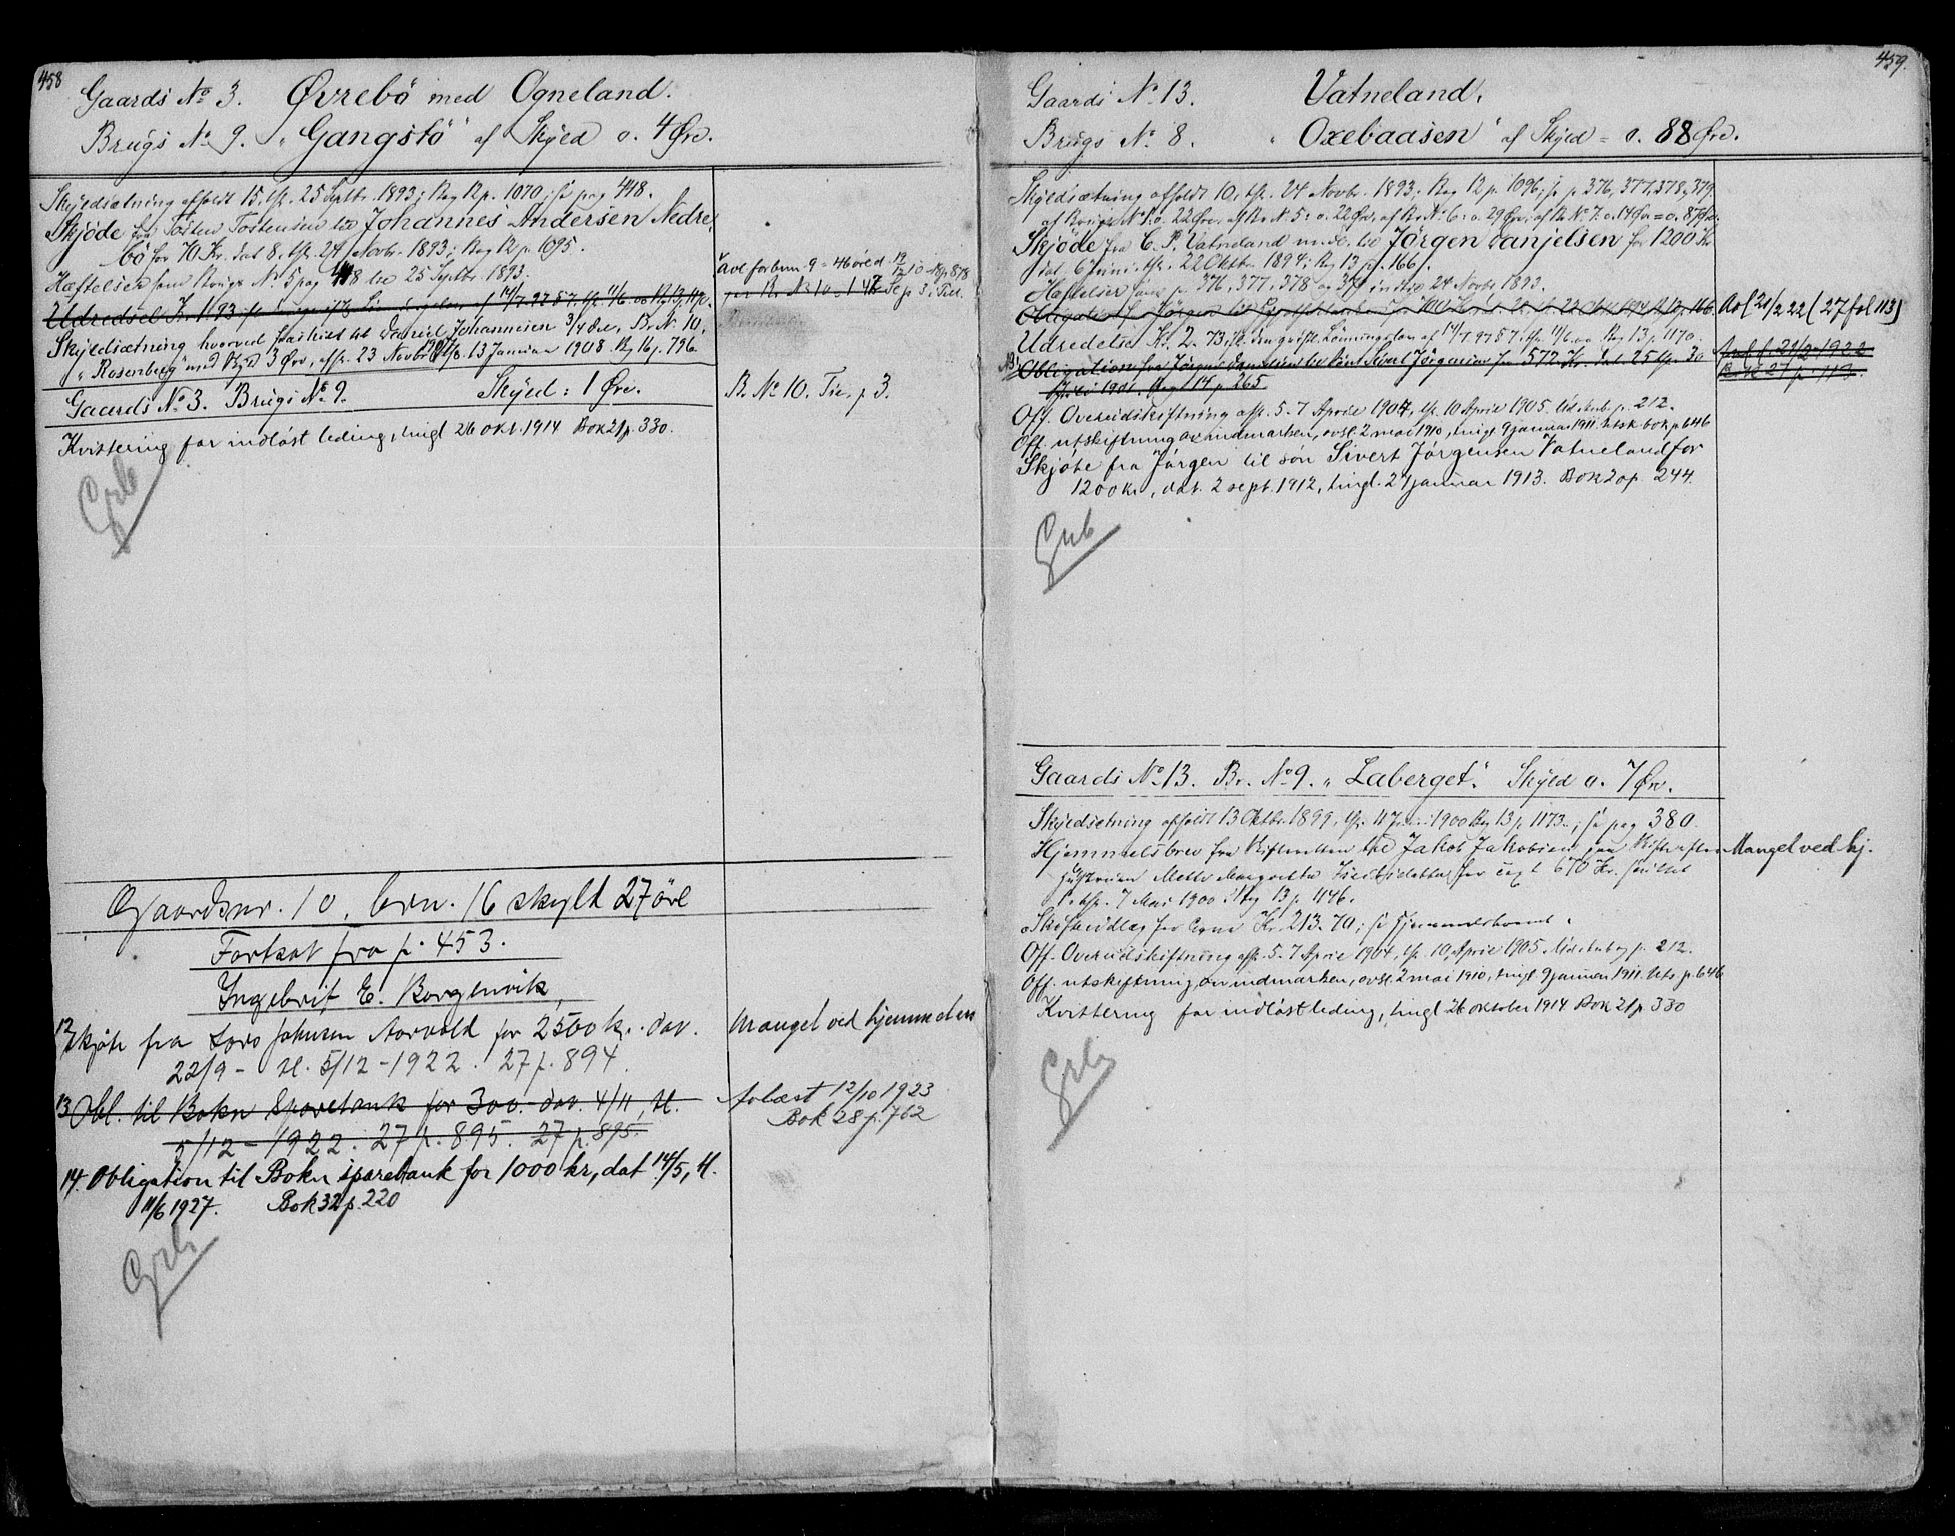 458
Gaards № 3. Øvrebö med Ogneland.
Brugs № 9. „Gangstö" af Skyld o. 4 Øre.
Skyldsætning afholdt 15, th. 25 Septbr. 1893; Bog 12 p. 1070; se pag 448.
Skjöde fra Torsten Torstensen til Johannes Andersen Nedre,
bö for 70 Kr. dat 8. th. 24 Novbr. 1893; Bog 12 p. 1095.
Hæftelser som Brugs № 5 pag 448 til 25 Septbr. 1893.
Udredsel Kr. 1.93 14/7.97 11/6
Skyldsætning hvorved fraskilt til Johannesen 3/4 Øre, Br. № 10,
„Rosenberg" med Skyld 3 Øre, afh. 23 Novbr 1907 th. 13 Januar 1908. Bog 16 p. 796.
Gaards № 3. Brugs № 9. Skyld: 1 Øre.
Kvittering for indløst leding, tingl 26 okt. 1914 Bok 21 p. 330.
Grb
B. № 10. Til. p 3.
Gaardsnr. 10, brn. 16 skyld 27 öre
Fortsat fra p. 453.
Ingebrit E. Borgenvik
12 Skjöte fra Lars Johnsen Aarvold for 2500 k. dat.
22/9 - tl. 5/12 - 1922. 27 p. 894.
Mangel ved hjemmelen
13 Obl. til Bokn Sparebank for 300.- dat. 4/11, tl.
5/12 - 1922. 27 p. 895. 27 p. 895.
Avlæst 12/10 1923
Bok 28 p. 702
14. Obligation til Bokn sparebank for 1000 kr, dat 14/5, tl.
11/6 1927. Bok 32 p. 220
Grb
459.
Gaards № 13. Vatneland.
Brugs № 8. „Oxebaasen" af Skyld = o. 88 Øre.
Skyldsætning afholdt 10, th. 24 Novbr. 1893; Bog 12 p. 1096; se p. 376, 377, 378, 379,
af Brugs № 1: o. 22 Øre, af Br. № 5: o. 22 Øre, af Br. № 6: o. 29 Øre, af Br № 7: o. 14 Øre = o. 87 Øre.
Skjöde fra C. P. Vatneland til Jörgen Danjelsen for 1200 Kr
dat. 6 Juni, th. 22 Oktbr. 1894; Bog 13 p. 166.
Hæftelser p. 376, 377, 378 og 379 indtil 24 Novbr 1893.
Av (21/2 22 (27 fol 113)
Udredelse Kr. 2.73, Lönningsplan af 14/7.97 § 7, th. 11/6.00 Bog 13 p. 1170.
Obligation fra Jörgen Danielsen til Jörgensen for 572 Kr. dat. 25 th. 30
1901. Bog 14 p. 265.
Avl. f. 21/2 1922
Bok 27 p. 113.
Off. Overudskiftning afh. 5-7 April 1904, th. 10 April 1905. Udskub. p. 212.
Off. utskiftning av indmarken, avsl. 2 mai 1910, tingl 9 januar 1911. Utsk. bok p 646
Skjøte fra Jørgen til søn Sivert Jørgensen Vatneland for
1200 kr, dat. 2 sept. 1912, tingl. 27 januar 1913. Bok 20 p. 244.
Grb
Gaards № 13. Br. № 9. „Laberget". Skyld o. 7 Øre.
Skyldsætning afholdt 13 Oktbr. 1899, th. 11 Juni 1900 Bog 13 p. 1173; se pag 380.
Hjemmelsbrev fra Skifteretten til Jakob Jakobsen paa Skifte efter
Hustruen Mette Margrethe for 670 Kr.
th. 7 Mai 1900 Bog 13 p. 1146.
Mangel ved hj.
Skifteudlæg for Arv Kr. 213.70; se Hjemmelsbrevet.
Off. Overudskiftning afh. 5-7 April 1904, th. 10 April 1905. Udskub. p. 212.
Off. utskiftning av indmarken, avsl. 2 mai 1910, tingl. 9 januar 1911. Uts. p. 646
Kvittering for indløst leding, tingl 26 oktober 1914 Bok 21 p. 330
Grb